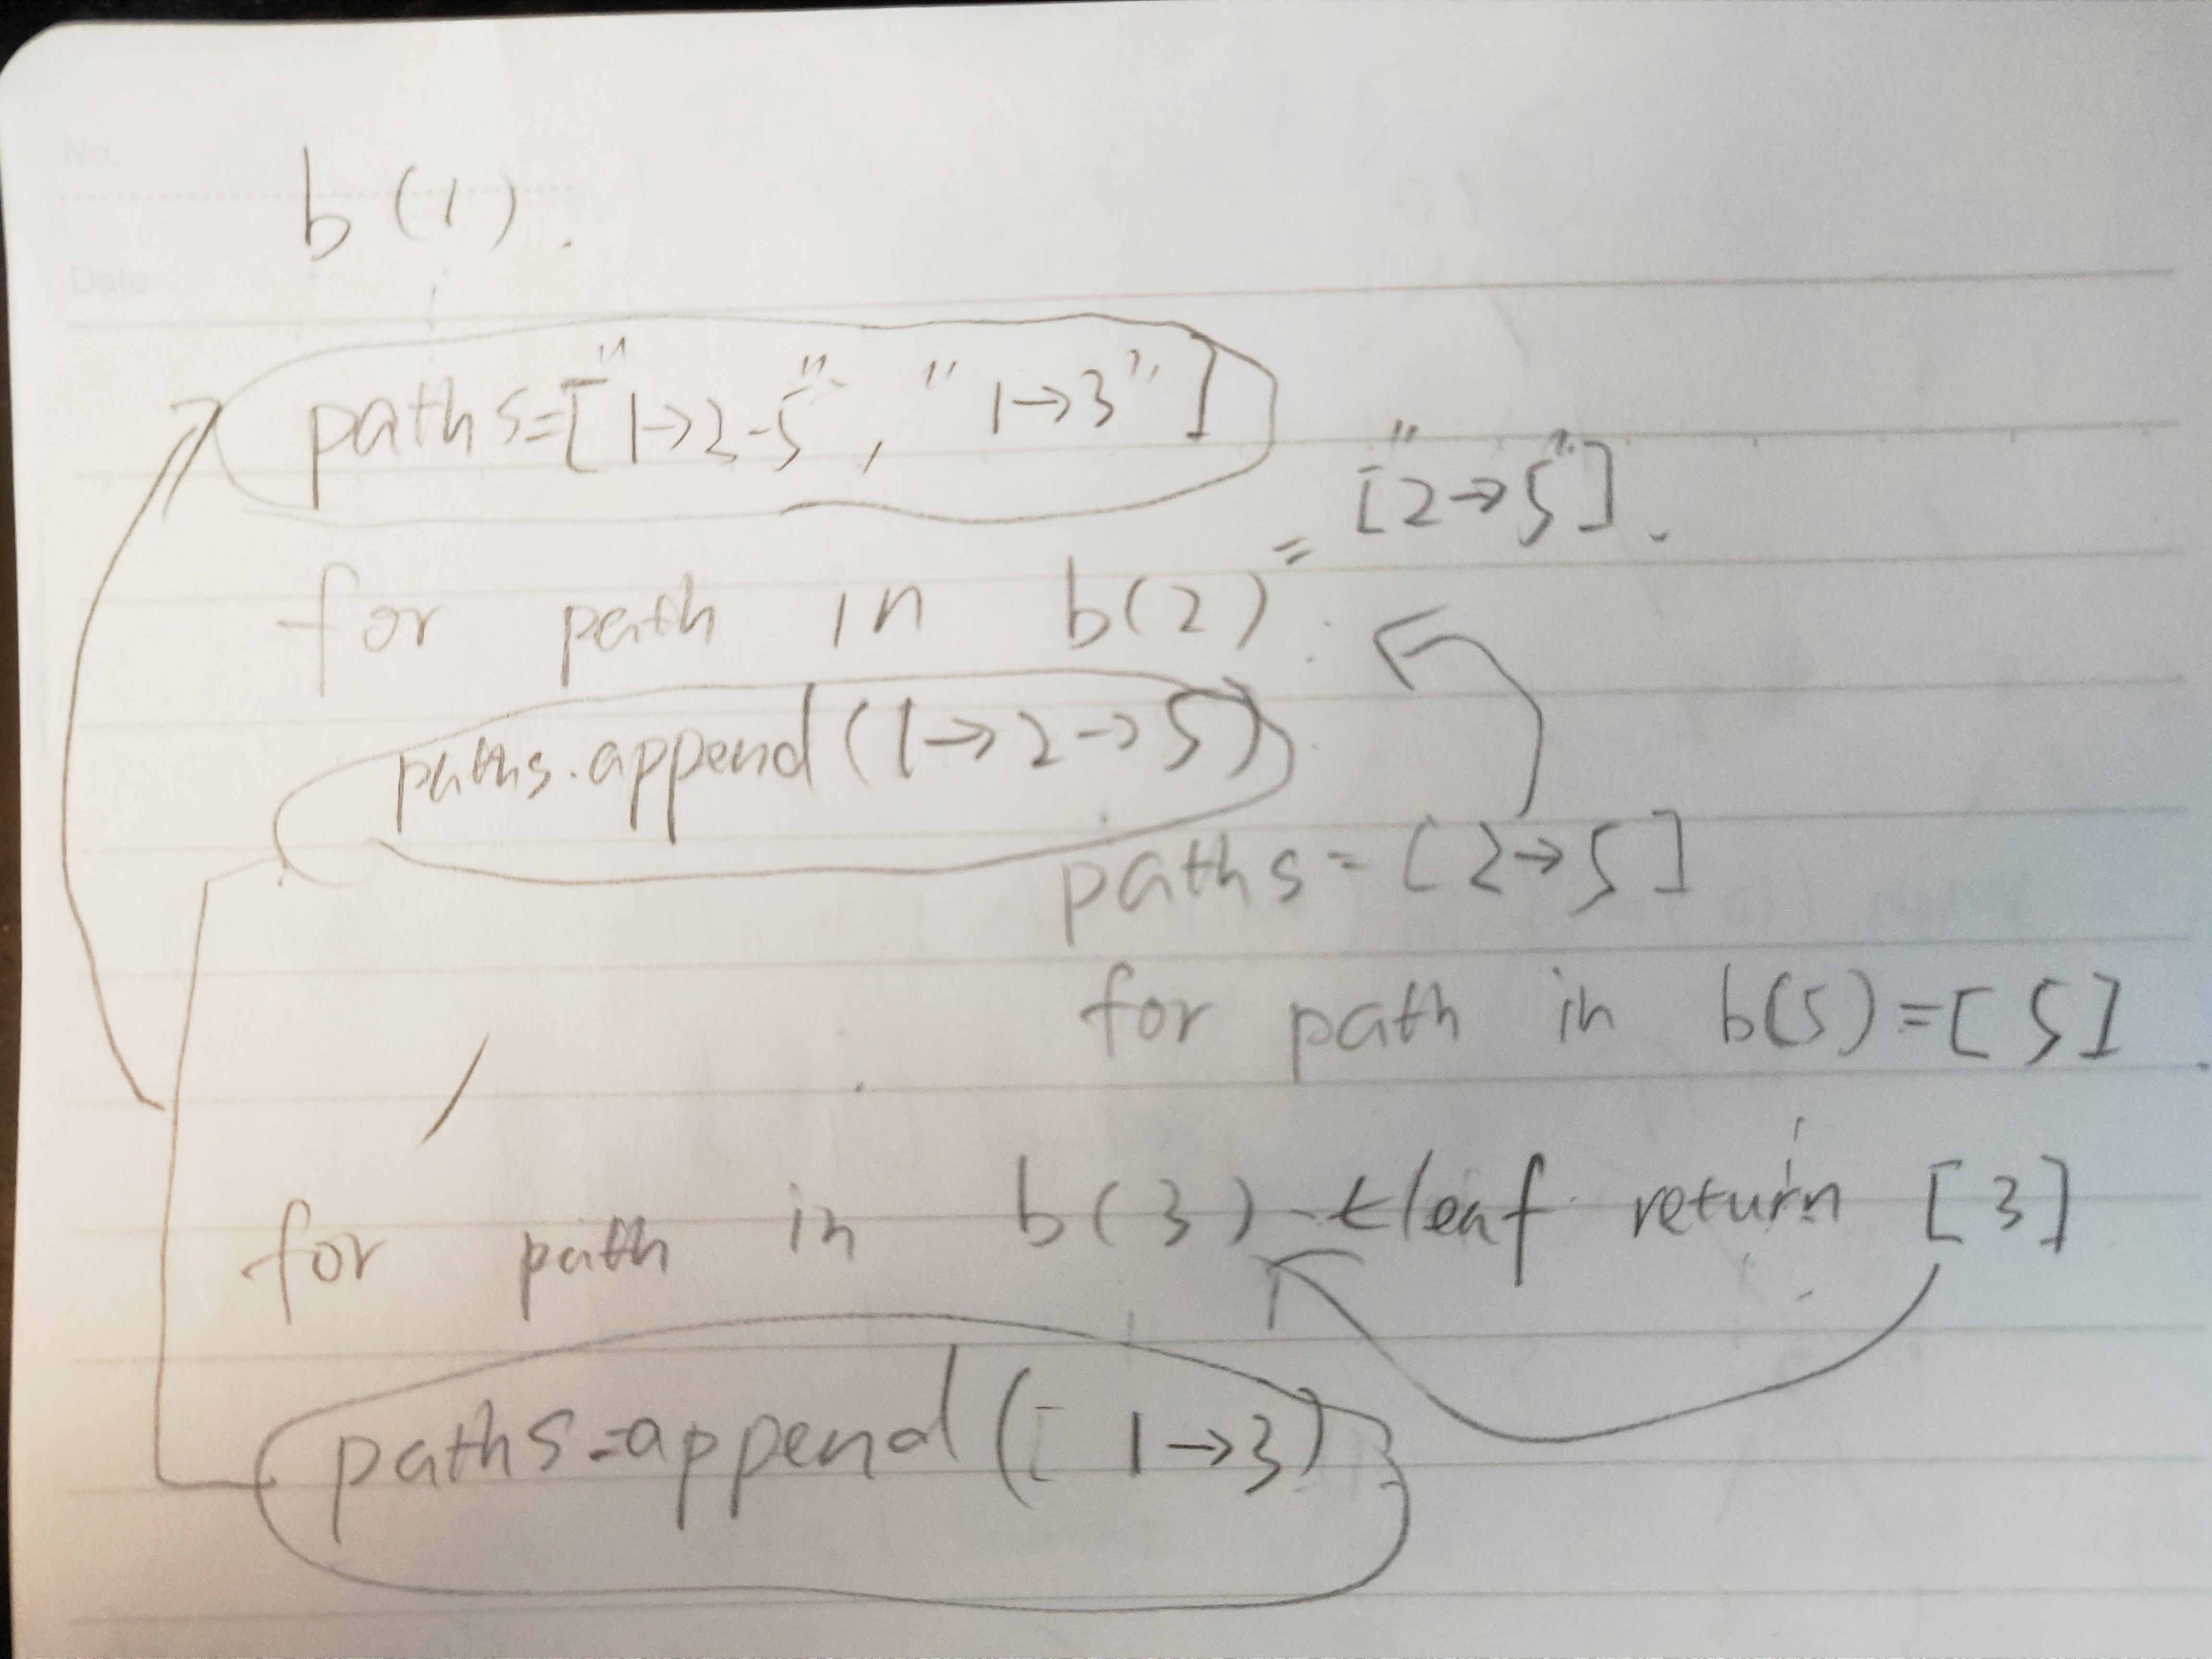 No.
b(1).
Date
paths=["1→2-5", "1→3"]
= ["2→5"].
for path in b(2):
paths.append(1→2→5)
paths=[2→5]
for path in b(5)=[5]
for path in b(3) leaf return [3]
paths=append([1→3)